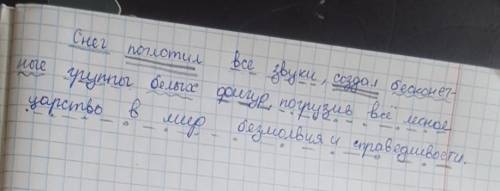 Снег поглотил все звуки, создал бесконеч-
ные группы белых фигур, погрузив всё лесное
царство в мир безмолвия и справедливости.